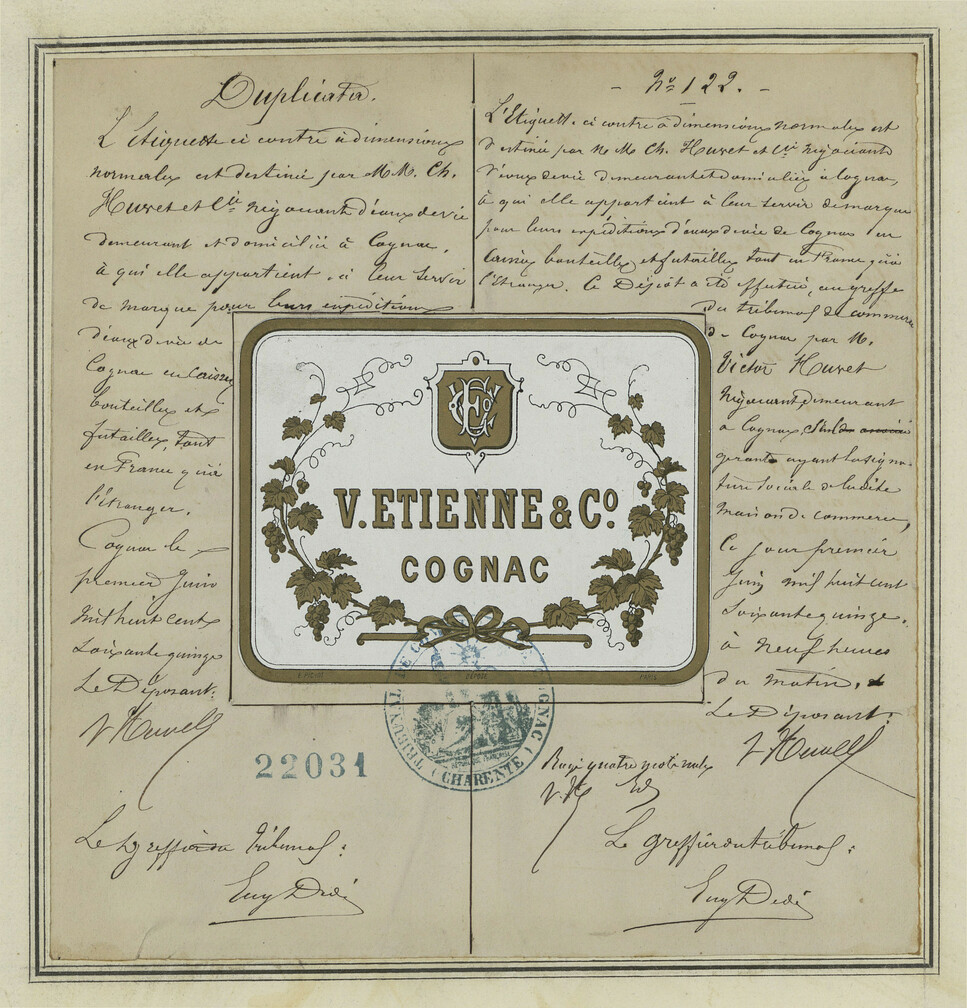 Duplicata.
L'Etiquette ci contre à dimensions
normales est destinée par MM. Ch.
Huvet et Cie négociants d'eaux de vie
demeurant et domiciliés à Cognac,
à qui elle appartient, à leur servir
de marque pour leurs expéditions
d'eaux de vie de
Cognac en caisses
bouteilles et
futailles, tant
en France qu'à
l'étranger.
Cognac le
premier Juin
mil huit cent
soixante quinze
Le Déposant:
V Huvet
22031
Le greffier du tribunal:
Eug Dedé
- No 122. -
L'Etiquette ci contre à dimensions normales est
destinée par MM. Ch. Huvet et Cie négociants
d'eaux de vie demeurant et domiciliés à Cognac,
à qui elle appartient à leur servir de marque
pour leurs expéditions d'eaux de vie de Cognac en
caisses bouteilles et futailles tant en France qu'à
l'étranger. Ce Dépôt a été effectué, au greffe
du tribunal de commerce
de Cognac par M.
Victor Huvet
négociant, demeurant
à Cognac,
gérant ayant la signa-
ture sociale de la dite
maison de commerce,
Ce jour premier
Juin mil huit cent
soixante quinze.
à neuf heures
du matin.
Le Déposant:
V Huvet
Rayé quatre mots nuls
V. H. ED
Le greffier du tribunal:
Eug Dedé
V. ETIENNE & Co
COGNAC
DÉPOSÉ
PARIS
TRIBUNAL DE COMMERCE COGNAC
REPUBLIQUE FRANÇAISE
(CHARENTE)